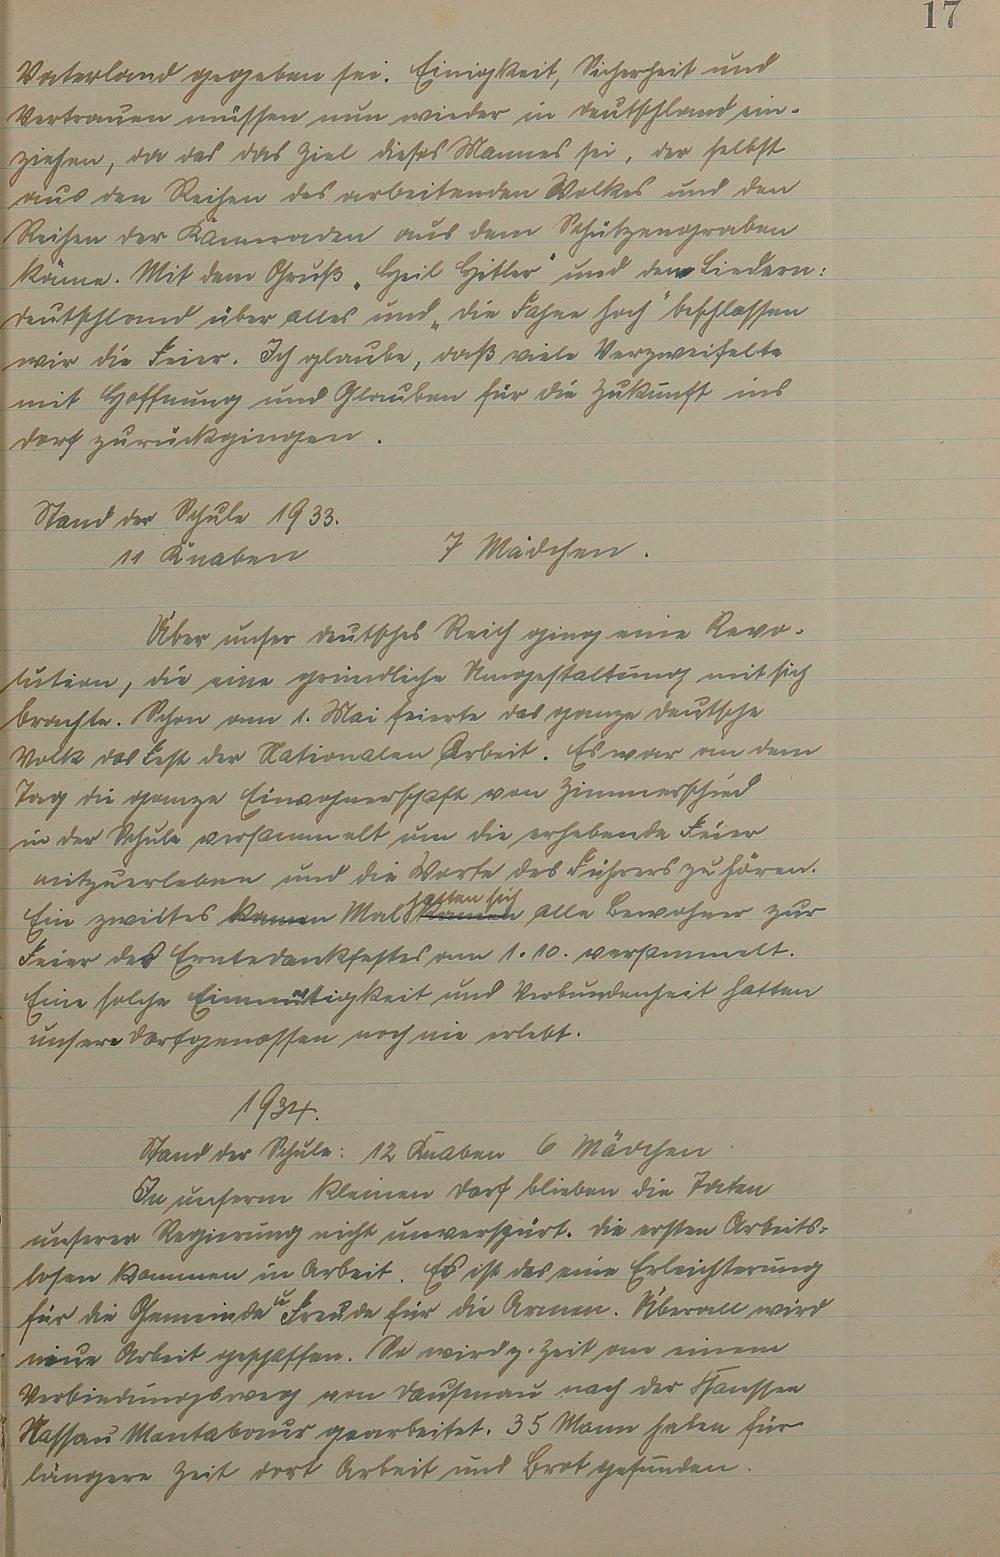 17
Vaterland gegeben sei. Einigkeit, Sicherheit und
Vertrauen müssen nun wieder in Deutschland ein-
ziehen, da das das Ziel dieses Mannes sei, der selbst
aus den Reihen des arbeitenden Volkes und den
Reihen der Kameraden aus dem Schützengraben
käme. Mit dem Gruß „Heil Hitler" und den Liedern:
Deutschland über alles und „die Fahne hoch" beschlossen
wir die Feier. Ich glaube, daß viele Verzweifelte
mit Hoffnung und Glauben für die Zukunft ins
Dorf zurückgingen.
Stand der Schule 1933.
11 Knaben 7 Mädchen.
Über unser deutsches Reich ging eine Revo-
lution, die eine gründliche Umgestaltung mit sich
brachte. Schon am 1. Mai feierte das ganze deutsche
Volk das Fest der Nationalen Arbeit. Es war an dem
Tag die ganze Einwohnerschaft von Zimmerschied
in der Schule versammelt um die erhebende Feier
mitzuerleben und die Worte des Führers zu hören.
Ein zweites kamen Mal kamen hatten sich alle Bewohner zur
Feier des Erntedankfestes am 1.10. versammelt.
Eine solche Einmütigkeit und Verbundenheit hatten
unsere Dorfgenossen noch nie erlebt.
1934.
Stand der Schule: 12 Knaben 6 Mädchen
In unserm kleinen Dorf blieben die Taten
unserer Regierung nicht unverspürt. Die ersten Arbeits-
losen kommen in Arbeit. Es ist das eine Erleichterung
für die Gemeinde u Freude für die Armen. Überall wird
neue Arbeit geschaffen. So wird z. Zeit an einem
Verbindungsweg von Dausenau nach der
Nassau Montabaur gearbeitet. 35 Mann haben für
längere Zeit dort Arbeit und Brot gefunden.